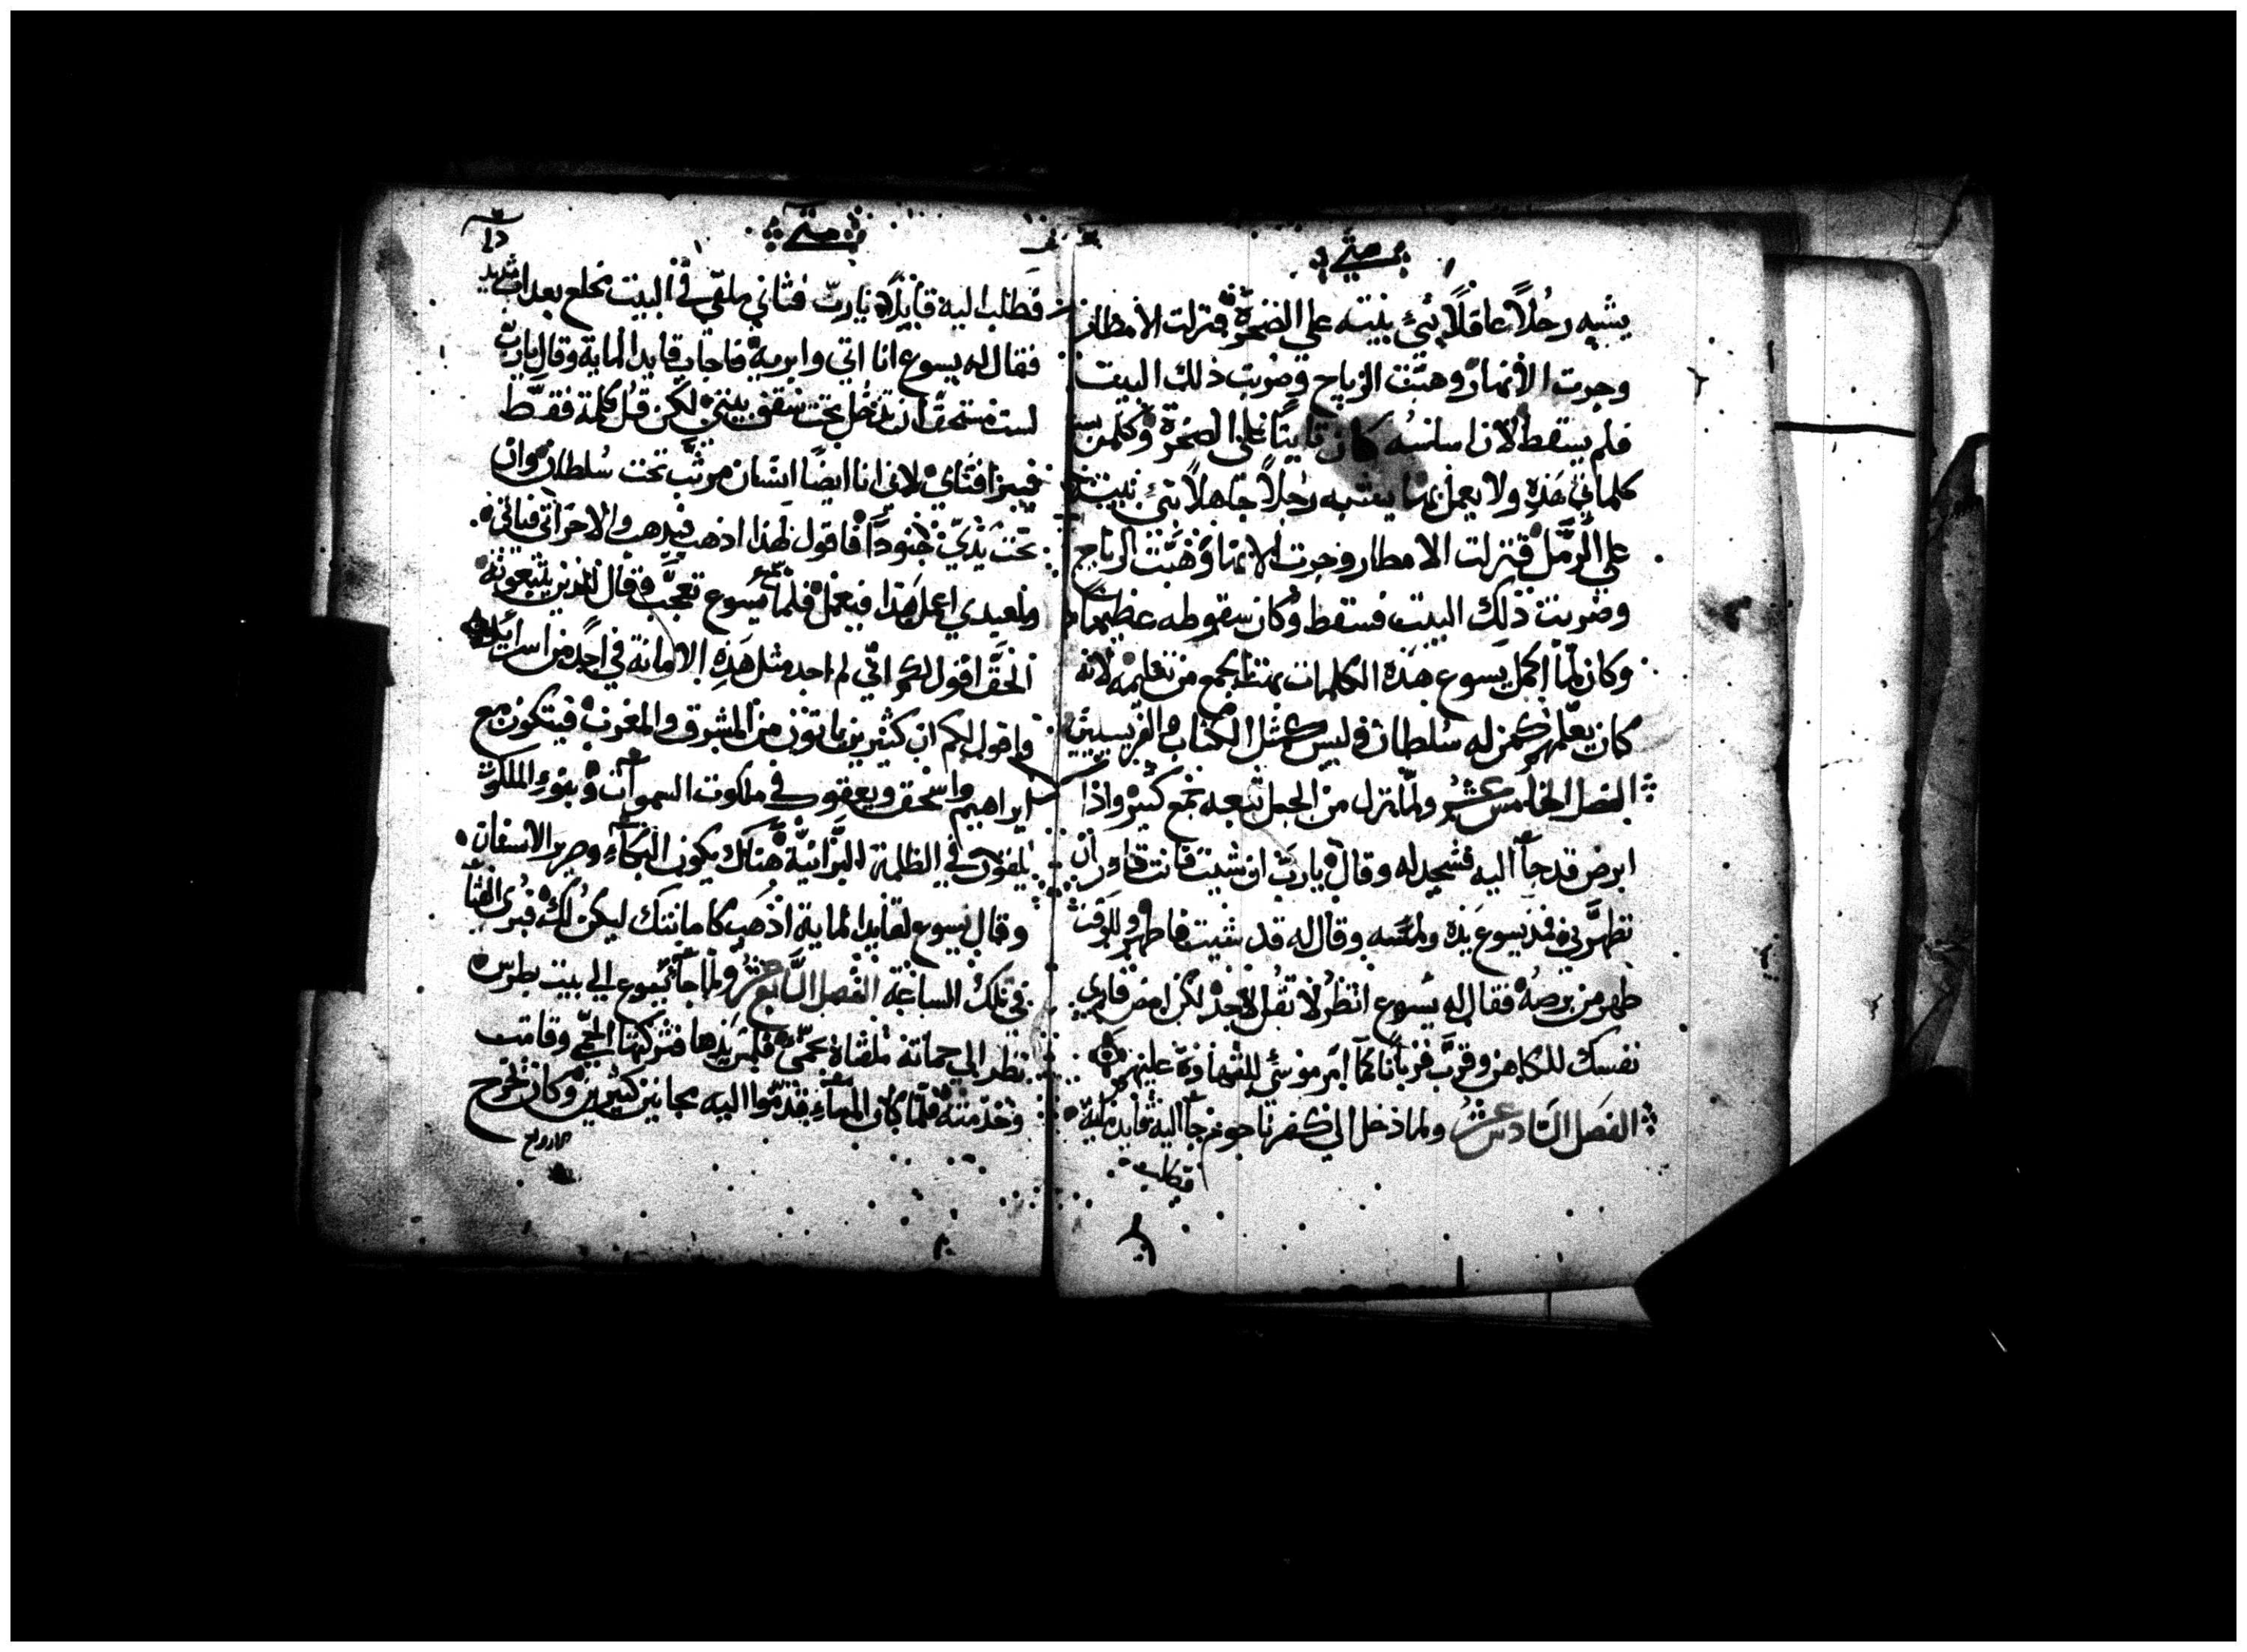 متي
يشبه رجُلاً عاقلاً بَنيَ بيته علي الصَخرَة فنزلت الامطار
وجرت الانهار وهبَّت الرياح وضربت ذلك البيت
فلم يسقط لان اساسُه كان ثابتًا علي الصخرة وكلمن يسمع
كلماتي هَذِه ولا يعمل بها يشبه رجُلاً جاهلاً بَنيَ بيته
علي الرَّمل فنزلت الامطار وجرت الانهار وَهَبَّت الرياح
وضربت ذلك البيت فسقط وكان سقوطه عظيمًا
وكان لمَّا اكمل يَسوع هَذه الكلمات بهتت الجمع من تعليمه لانه
كان يعلّمهم كمن له سُلطان وليس كمثل الكتاب والفريسيين
الفصل الخامس عشر ولمّا نزل من الجبل تبعه جمع كثير واذا
ابرص قد جآ اليه فسجد له وقال يارب ان شيت فانت قادر ان
تطهّرني فمد يسوع يَدَه ولمَسَه وقال له قد شيت فاطهر وللوقت
طهر من برصهُ فقال له يَسوع انظرُ لا تقُل لاحد لكن امض فاري
نفسك للكاهن وقرّب قربانًا كما امر موسَي للشهادة عليهم
الفصَل السَادس عشر ولما دخل الي كفرناحوم جآ اليه قايد ماية
فطلب
متي
فَطلب اليه قايلاً يارب فتاني ملقي في البيت مخلع بعداب شديد
فقال له يسوع انا اتي وابريه فاجاب قايد الماية وقال يارب
لست مستحقًا ان تدخل تحت سقف بيتي لكن قُل كلمة فقط
فيبرا فتاي لاني انا ايضًا انسَان مرتب تحت سُلطان وان
تحت يَدَيّ جنودًا فاقول لهذا اذهب فيدهب والاخر اتي فياتي
ولعبدي اعمل هَذا فيعمل فلما سمع يسوع تعجّب وقال للذين يتبعونه
الحقّ اقول لكم انّي لم اجد مثل هَذِه الامانه في احدٍ من اسرايل
واقول لكم ان كثيرين ياتون من المشرق والمغرب فيتكون مع
ابراهيم واسحق ويعقوب في ملكوت السموات وبنوء الملكوت
يلقون في الظلمة البَّرانيّة هناك يكون البكآء وصرير الاسنان
وقال يسوع لقايد الماية اذهب كامانتك ليكن لك فبري الفتا
في تلك الساعة الفصل السَّابع عشر ولما جآ يَسوع الي بيت بطرس
نظر الي حماته ملقاة بحمّي فلمس يدها فتركتها الحمّي وقامت
وخدمته فلمّا كان المسَآء قدّموا اليه مجانين كثيرين وكان يخرج
الارواح